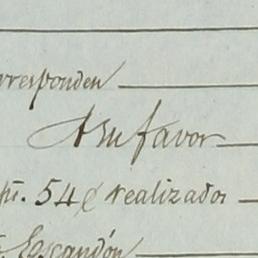 rresponden
A su favor
54 realizados
Escandón